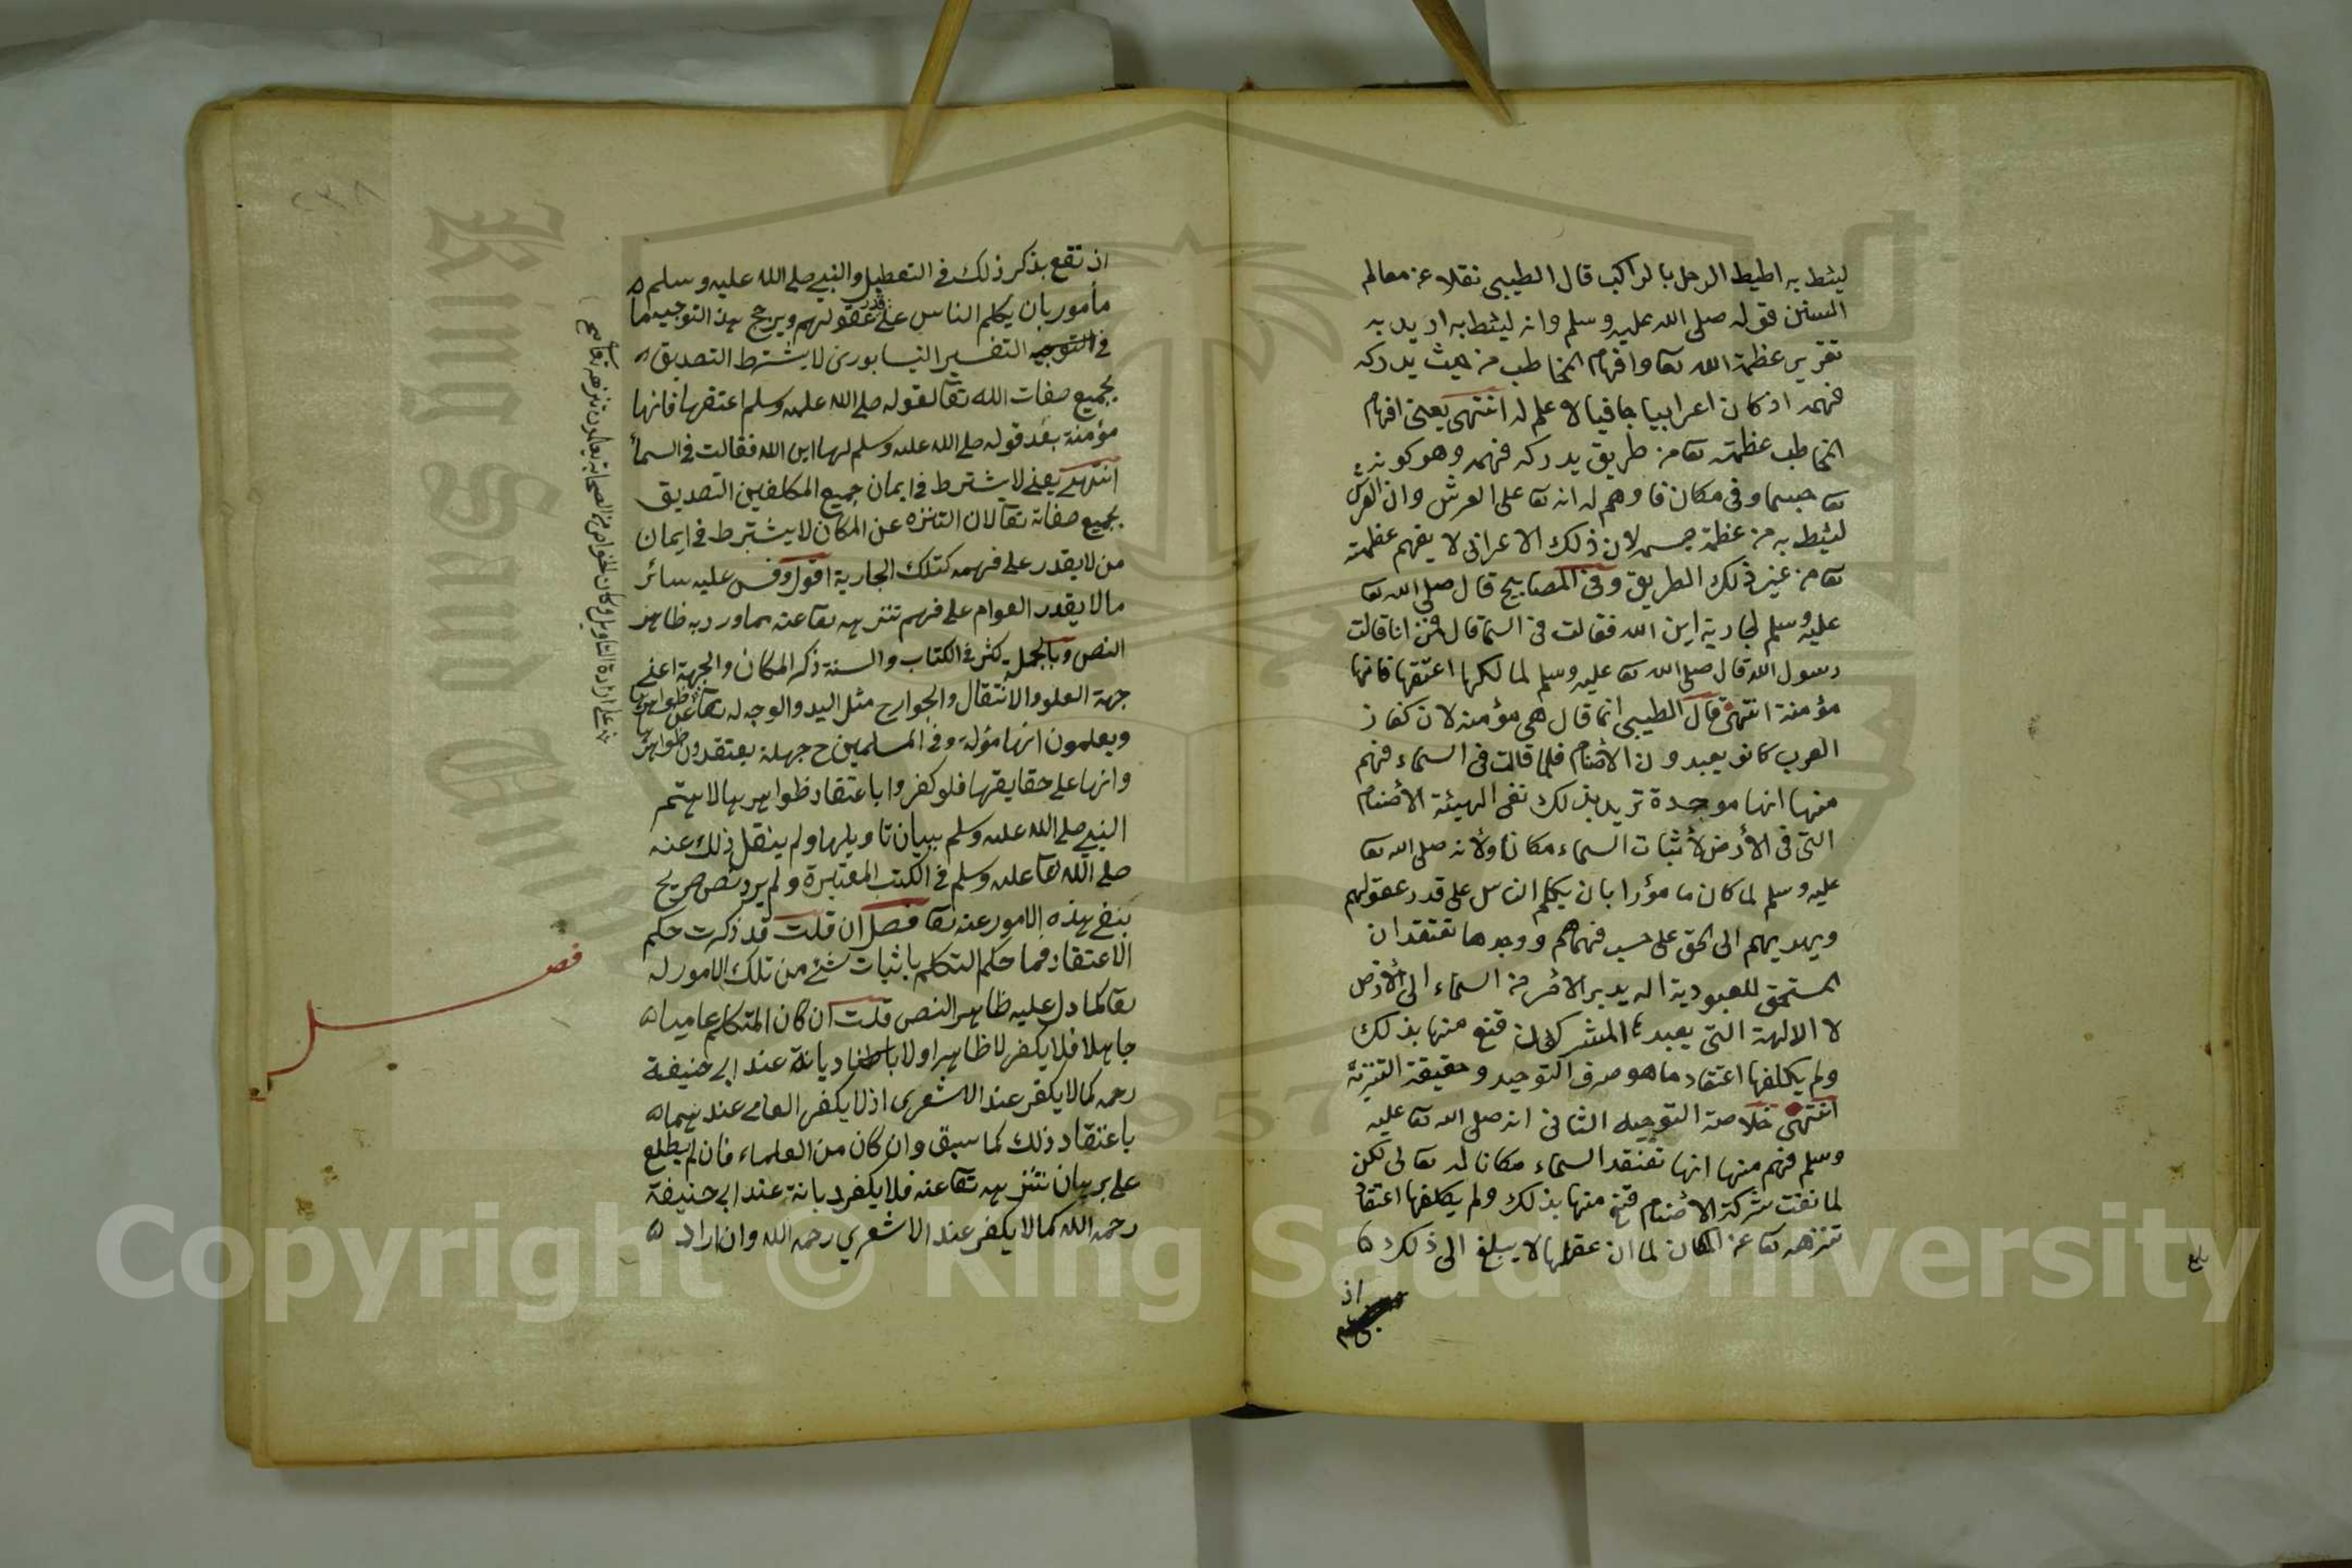 ليئط به اطيط الرحل بالراكب قال الطيبي نقلا عن معالم
السنن قوله صلى الله عليه وسلم وانه ليئط به اريد به
تقرير عظمة الله تعا وافهام المخاطب من حيث يدركه
فهمه اذ كان اعرابيا جافيا لا علم له انتهى يعنى افهام
المخاطب عظمته تعا من طريق يدركه فهمه وهو كونه
تعا جسما وفى مكان فاوهم له انه تعا على العرش وان العرش
ليئط به من عظمة جسمه لان ذلك الاعرابى لا يفهم عظمته
تعا من غير ذلك الطريق وفى المصابيح قال صلى الله تعا
عليه وسلم لجارية اين الله فقالت فى السما قال فمن انا قالت
رسول الله قال صلى الله تعا عليه وسلم لمالكها اعتقها فانها
مؤمنة انتهى قال الطيبى انما قال هى مؤمنة لان كفار
العرب كانو يعبدون الأصنام فلما قالت فى السماء فهم
منها انها موحدة تريد بذلك نفى الهيئة الأصنام
التى فى الأرض لا ثبات السماء مكانا ولأنه صلى الله تعا
عليه وسلم لما كان مامؤرا بان يكلم الناس على قدر عقولهم
ويهديهم الى الحق على حسب فهمهم ووجدها تعتقد ان
المستحق للعبودية اله يدبر الأمر من السماء الى الأرض
لا الالهة التى يعبدها المشركون قنع منها بذلك
ولم يكلفها اعتقاد ما هو صرف التوحيد وحقيقة التنزيه
انتهى خلاصة التوجيه الثانى انه صلى الله تعا عليه
وسلم فهم منها انها تعتقد السماء مكانا له تعالى لكن
لما نفت شركة الأصنام قنع منها بذلك ولم يكلفها اعتقاد
تنزهه تعا عن المكان لما ان عقلها لا يبلغ الى ذلك
اذ
اذ تقع بذكر ذلك فى التعطيل والنبى صلى الله عليه وسلم
مأمور بان يكلم الناس على قدر عقولهم ويرجح هذا التوجيه ما
فى التوجيه التفسير النيسابورى لا يشترط التصديق
بجميع صفات الله تعا لقوله صلى الله عليه وسلم اعتقها فانها
مؤمنة بعد قوله صلى الله عليه وسلم لها اين الله فقالت فى السمأ
انتهى يعنى لا يشترط فى ايمان جميع المكلفين التصديق
بجميع صفاته تعا لان التنزه عن المكان لا يشترط فى ايمان
من لا يقدر على فهمه كتلك الجارية اقول وقس عليه سائر
ما لا يقدر العوام على فهم تنزيهه تعا عنه مما ورد به ظاهر
النص وبالجملة كثر فى الكتاب والسنة ذكر المكان والجهة اعنى
جهة العلو والانتقال والجوارح مثل اليد والوجه له تعا
ويعلمون انها مؤلة وفى المسلمين ح جهلة يعتقدون ظواهرها
وانها على حقايقها فلو كفروا باعتقاد ظواهرها لاهتم
النبى صلى الله عليه وسلم ببيان تاويلها ولم ينقل ذلك عنه
صلى الله تعا عليه وسلم فى الكتب المعتبرة ولم يرد نص صريح
بنفى هذه الامور عنه تعا فصل ان قلت قد ذكرت حكم
الاعتقاد فما حكم التكلم باثبات شئ من تلك الامور له
تعا كما دل عليه ظاهر النص قلت ان كان المتكلم عاميا
جاهلا فلا يكفر لا ظاهرا ولا باطنا ديانة عند ابى حنيفة
رحمه كما لا يكفر عند الاشعرى اذ لا يكفر العامى عندهما
باعتقاد ذلك كما سبق وان كان من العلماء فان لم يطلع
على برهان تنزيهه تعا عنه فلا يكفر ديانة عند ابى حنيفة
رحمه الله كما لا يكفر عند الاشعري رحمه الله وان اراد
فصل
King Saud University
1957
Copyright © King Saud University